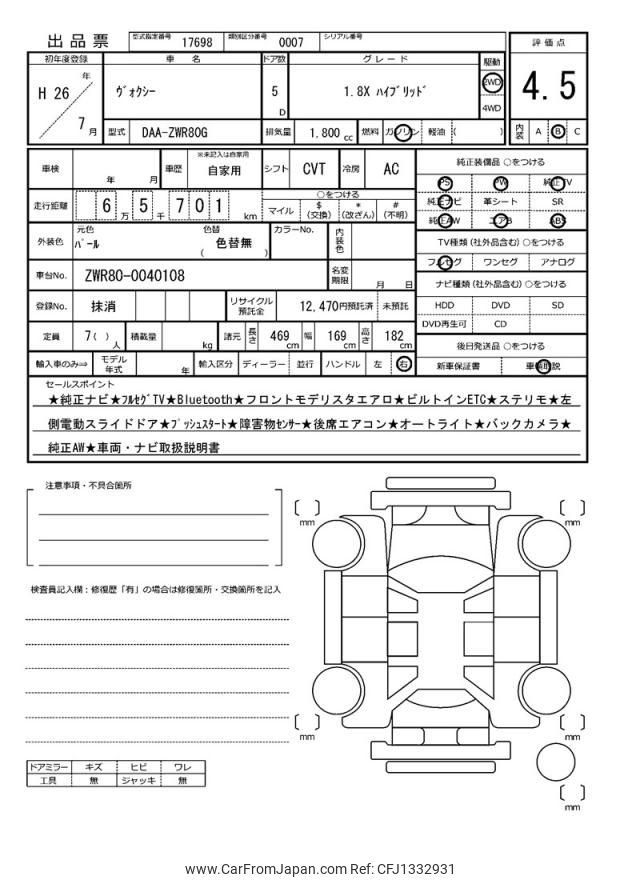 出品票 型式指定番号 17698 類別区分番号 0007 シリアル番号
評価点
4.5
内装 A B C
初年度登録 車名 ドア数 グレード 駆動
H 26 年 7 月 ヴォクシー 5 D 1.8X ハイブリッド 2WD 4WD
型式 DAA-ZWR80G 排気量 1,800 cc 燃料 ガソリン 軽油 ( )
車検 年 月 車歴 ※未記入は自家用 自家用 シフト CVT 冷房 AC
走行距離 6 万 5 千 7 0 1 km ○をつける
マイル $ (交換) * (改ざん) # (不明)
外装色 元色 パール 色替 色替無 ( ) カラーNo. 内装色
車台No. ZWR80-0040108 名変期限 月 日
登録No. 抹消 リサイクル預託金 12,470円預託済 未預託
定員 7( )人 積載量 kg 諸元 長さ 469 cm 幅 169 cm 高さ 182 cm
輸入車のみ⇒ モデル年式 年 輸入区分 ディーラー 並行 ハンドル 左 右
純正装備品 ○をつける
PS PW 純正TV
純正ナビ 革シート SR
純正AW エアB ABS
TV種類 (社外品含む) ○をつける
フルセグ ワンセグ アナログ
ナビ種類 (社外品含む) ○をつける
HDD DVD SD
DVD再生可 CD
後日発送品 ○をつける
新車保証書 車輌取説
セールスポイント
★純正ナビ★フルセグTV★Bluetooth★フロントモデリスタエアロ★ビルトインETC★ステリモ★左
側電動スライドドア★プッシュスタート★障害物センサー★後席エアコン★オートライト★バックカメラ★
純正AW★車両・ナビ取扱説明書
注意事項・不具合箇所
検査員記入欄：修復歴「有」の場合は修復箇所・交換箇所を記入
mm mm
mm mm
mm
ドアミラー キズ ヒビ ワレ
工具 無 ジャッキ 無
www.CarFromJapan.com Ref: CFJ1332931